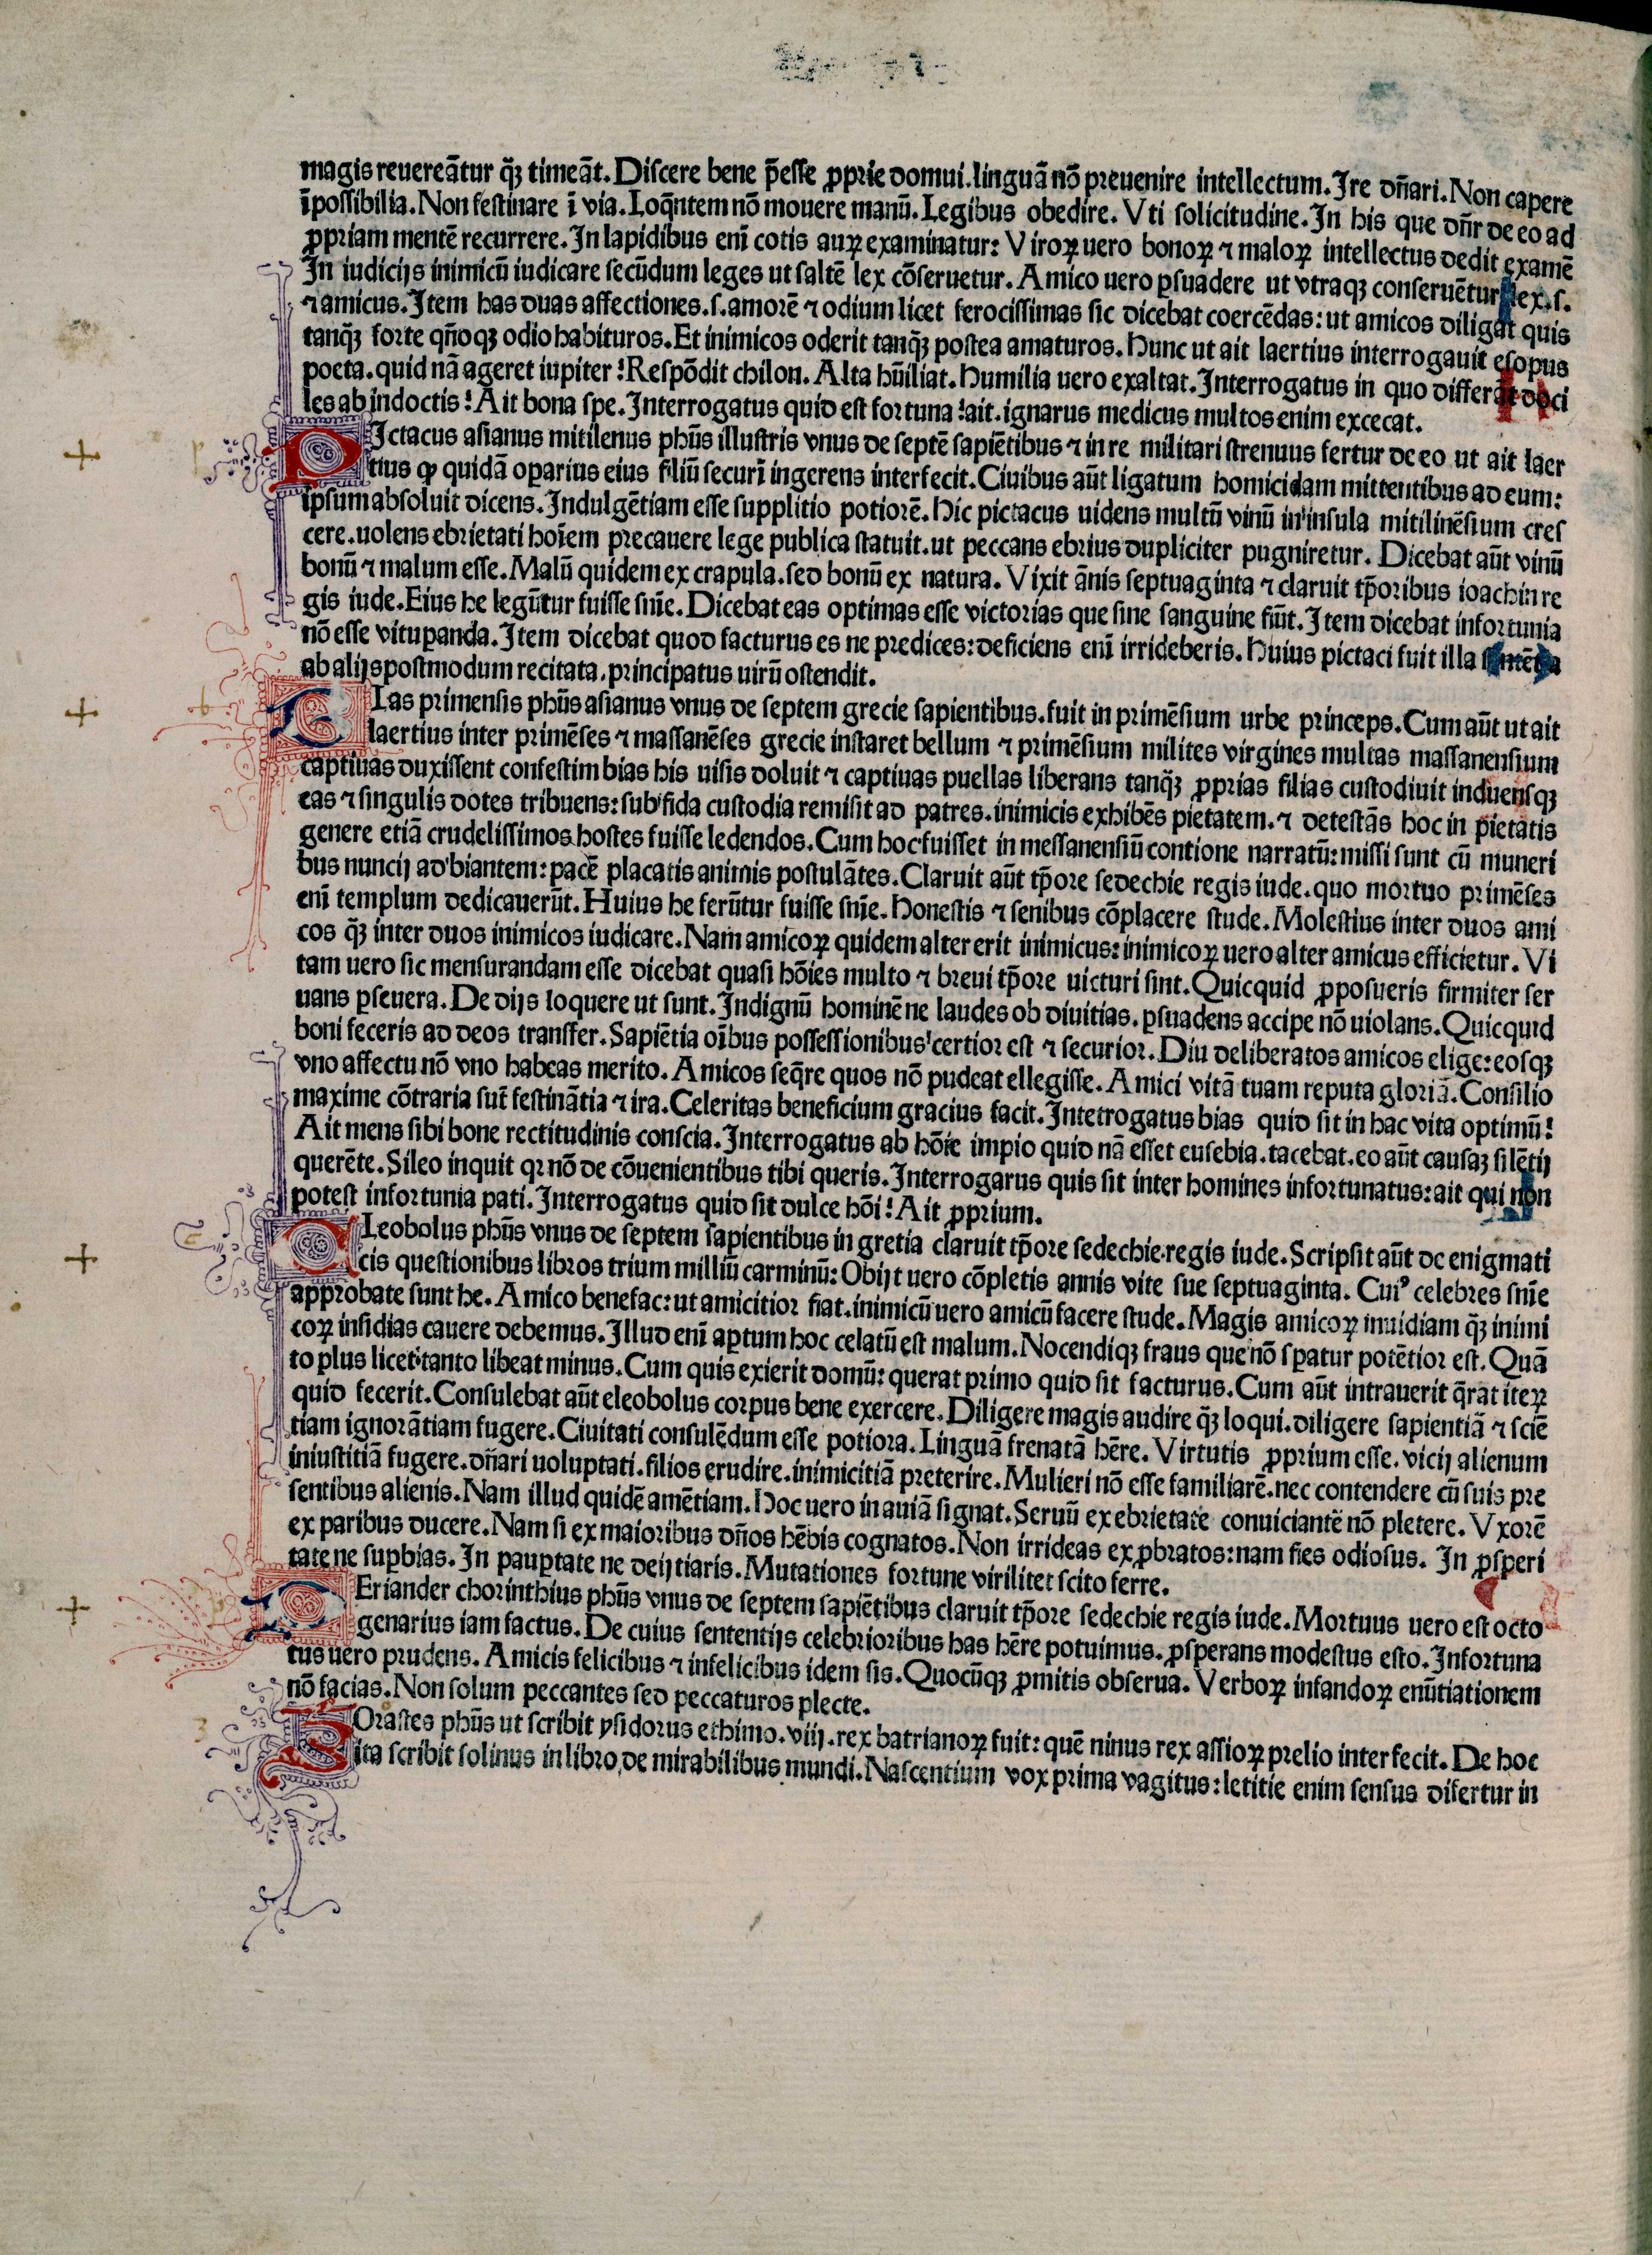 magis reuereãtur q̃ꝫ timeãt. Discere bene p̃esse ꝓprie domui. linguã nõ preuenire intellectum. Ire dñari. Non capere
ĩpossibilia. Non festinare ĩ via. Loq̃ntem nõ mouere manũ. Legibus obedire. Vti solicitudine. In his que dñr de eo ad
ꝓpriam mentẽ recurrere. In lapidibus enĩ cotis auꝝ examinatur: Viroꝝ uero bonoꝝ ⁊ maloꝝ intellectus dedit examẽ
In iudicijs inimicũ iudicare secũdum leges ut saltẽ lex cõseruetur. Amico uero ꝑsuadere ut vtraqꝫ conseruẽtur lex .s.
⁊ amicus. Item has duas affectiones .s. amorẽ ⁊ odium licet ferocissimas sic dicebat coercẽdas: ut amicos diligat quis
tanq̃ꝫ forte qñoqꝫ odio habituros. Et inimicos oderit tanq̃ꝫ postea amaturos. Hunc ut ait laertius interrogauit esopus
poeta. quid nã ageret iupiter? Respõdit chilon. Alta hũiliat. Humilia uero exaltat. Interrogatus in quo differãt doci
les ab indoctis? Ait bona spe. Interrogatus quid est fortuna? ait. ignarus medicus multos enim excecat.
PIctacus asianus mitilenus phũs illustris vnus de septẽ sapiẽtibus ⁊ in re militari strenuus fertur de eo ut ait laer
tius ꝙ quidã oꝑarius eius filiũ securĩ ingerens interfecit. Ciuibus aũt ligatum homicidam mittentibus ad eum:
ipsum absoluit dicens. Indulgẽtiam esse supplitio potiorẽ. Hic pictacus uidens multũ vinũ in insula mitilinẽsium cres
cere. uolens ebrietati hoĩem precauere lege publica statuit. ut peccans ebrius dupliciter pugniretur. Dicebat aũt vinũ
bonũ ⁊ malum esse. Malũ quidem ex crapula. sed bonũ ex natura. Vixit ãnis septuaginta ⁊ claruit tꝑoribus ioachin re
gis iude. Eius he legũtur fuisse sñie. Dicebat eas optimas esse victorias que sine sanguine fiũt. Item dicebat infortunia
nõ esse vituꝑanda. Item dicebat quod facturus es ne predices: deficiens enĩ irrideberis. Huius pictaci fuit illa
ab alijs postmodum recitata. principatus uirũ ostendit.
Ias primensis phũs asianus vnus de septem grecie sapientibus. fuit in primẽsium urbe princeps. Cum aũt ut ait
laertius inter primẽses ⁊ massanẽses grecie instaret bellum ⁊ primẽsium milites virgines multas massanensium
captiuas duxissent confestim bias his uisis doluit ⁊ captiuas puellas liberans tanq̃ꝫ ꝓprias filias custodiuit induensqꝫ
eas ⁊ singulis dotes tribuens: sub fida custodia remisit ad patres. inimicis exhibẽs pietatem. ⁊ detestãs hoc in pietatis
genere etiã crudelissimos hostes fuisse ledendos. Cum hoc fuisset in messanensiũ contione narratũ: missi sunt cũ muneri
bus nuncij ad biantem: pacẽ placatis animis postulãtes. Claruit aũt tꝑore sedechie regis iude. quo mortuo primẽses
enĩ templum dedicauerũt. Huius he ferũtur fuisse sñie. Honestis ⁊ senibus cõplacere stude. Molestius inter duos ami
cos q̃ꝫ inter duos inimicos iudicare. Nam amicoꝝ quidem alter erit inimicus: inimicoꝝ uero alter amicus efficietur. Vi
tam uero sic mensurandam esse dicebat quasi hõies multo ⁊ breui tꝑore uicturi sint. Quicquid ꝓposueris firmiter ser
uans ꝑseuera. De dijs loquere ut sunt. Indignũ hominẽ ne laudes ob diuitias. ꝑsuadens accipe nõ uiolans. Quicquid
boni feceris ad deos transfer. Sapiẽtia oĩbus possessionibus certior est ⁊ securior. Diu deliberatos amicos elige: eosqꝫ
vno affectu nõ vno habeas merito. Amicos seq̃re quos nõ pudeat ellegisse. Amici vitã tuam reputa gloriã. Consilio
maxime cõtraria sũt festinãtia ⁊ ira. Celeritas beneficium gracius facit. Intetrogatus bias quid sit in hac vita optimũ?
Ait mens sibi bone rectitudinis conscia. Interrogatus ab hõie impio quid nã esset eusebia. tacebat. eo aũt causaꝫ silẽtij
querẽte. Sileo inquit qꝛ nõ de cõuenientibus tibi queris. Interrogarus quis sit inter homines infortunatus: ait qui non
potest infortunia pati. Interrogatus quid sit dulce hõi? Ait ꝓprium.
CLeobolus phũs vnus de septem sapientibus in gretia claruit tꝑore sedechie regis iude. Scripsit aũt de enigmati
cis questionibus libros trium milliũ carminũ: Obijt uero cõpletis annis vite sue septuaginta. Cuiꝰ celebres sñie
approbate sunt he. Amico benefac: ut amicitior fiat. inimicũ uero amicũ facere stude. Magis amicoꝝ inuidiam q̃ꝫ inimi
coꝝ insidias cauere debemus. Illud enĩ aꝑtum hoc celatũ est malum. Nocendiqꝫ fraus que nõ sꝑatur potẽtior est. Quã
to plus licet: tanto libeat minus. Cum quis exierit domũ: querat primo quid sit facturus. Cum aũt intrauerit q̃rat iteꝝ
quid fecerit. Consulebat aũt eleobolus corpus bene exercere. Diligere magis audire q̃ꝫ loqui. diligere sapientiã ⁊ sciẽ
tiam ignorãtiam fugere. Ciuitati consulẽdum esse potiora. Linguã frenatã hẽre. Virtutis ꝓprium esse. vicij alienum
iniustitiã fugere. dñari uoluptati. filios erudire. inimicitiã preterire. Mulieri nõ esse familiarẽ. nec contendere cũ suis pre
sentibus alienis. Nam illud quidẽ amẽtiam. Hoc uero in auiã signat. Seruũ ex ebrietate conuiciantẽ nõ pletere. Vxorẽ
ex paribus ducere. Nam si ex maioribus dños hẽbis cognatos. Non irrideas exꝓbratos: nam fies odiosus. In ꝓsperi
tate ne suꝑbias. In pauꝑtate ne deijtiaris. Mutationes fortune virilitet scito ferre.
PEriander chorinthius phũs vnus de septem sapiẽtibus claruit tꝑore sedechie regis iude. Mortuus uero est octo
genarius iam factus. De cuius sententijs celebrioribus has hẽre potuimus. ꝓsperans modestus esto. Infortuna
tus uero prudens. Amicis felicibus ⁊ infelicibus idem sis. Quocũqꝫ ꝓmitis obserua. Verboꝝ infandoꝝ enũtiationem
nõ facias. Non solum peccantes sed peccaturos plecte.
ZOrastes phũs ut scribit ysidorus ethimo. viij. rex batrianoꝝ fuit: quẽ ninus rex assioꝝ prelio interfecit. De hoc
ita scribit solinus in libro de mirabilibus mundi. Nascentium vox prima vagitus: letitie enim sensus difertur in